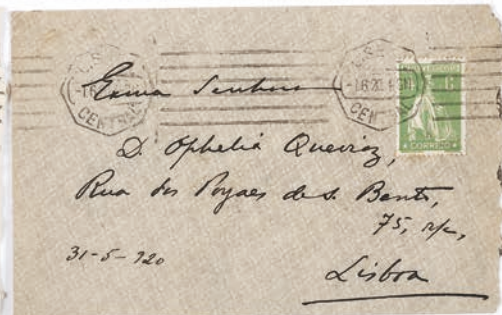 LISBOA
CENTRAL
LISBOA
CENTRAL
CORREIO
Exma Senhora
D. Ophelia Queiroz,
Rua dos Poyaes de S. Bento,
75, r/c,
31-5-920
Lisboa